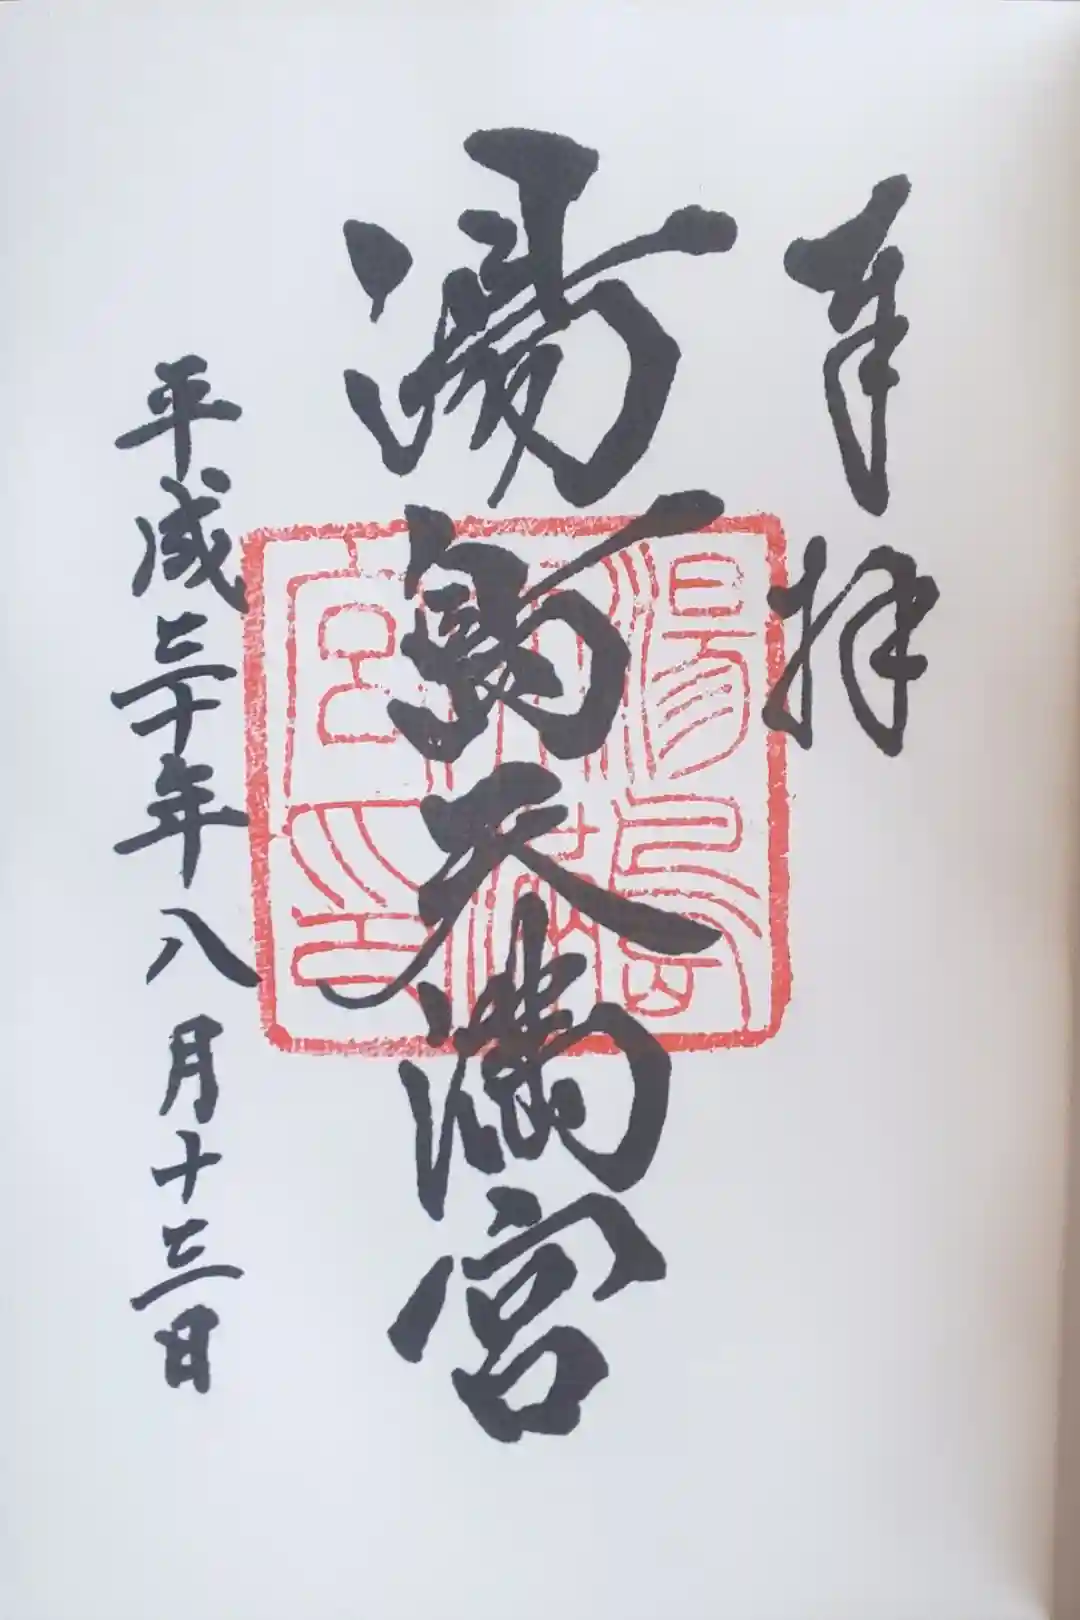 奉拝
湯島天満宮
湯島天満宮印
平成三十年八月十三日